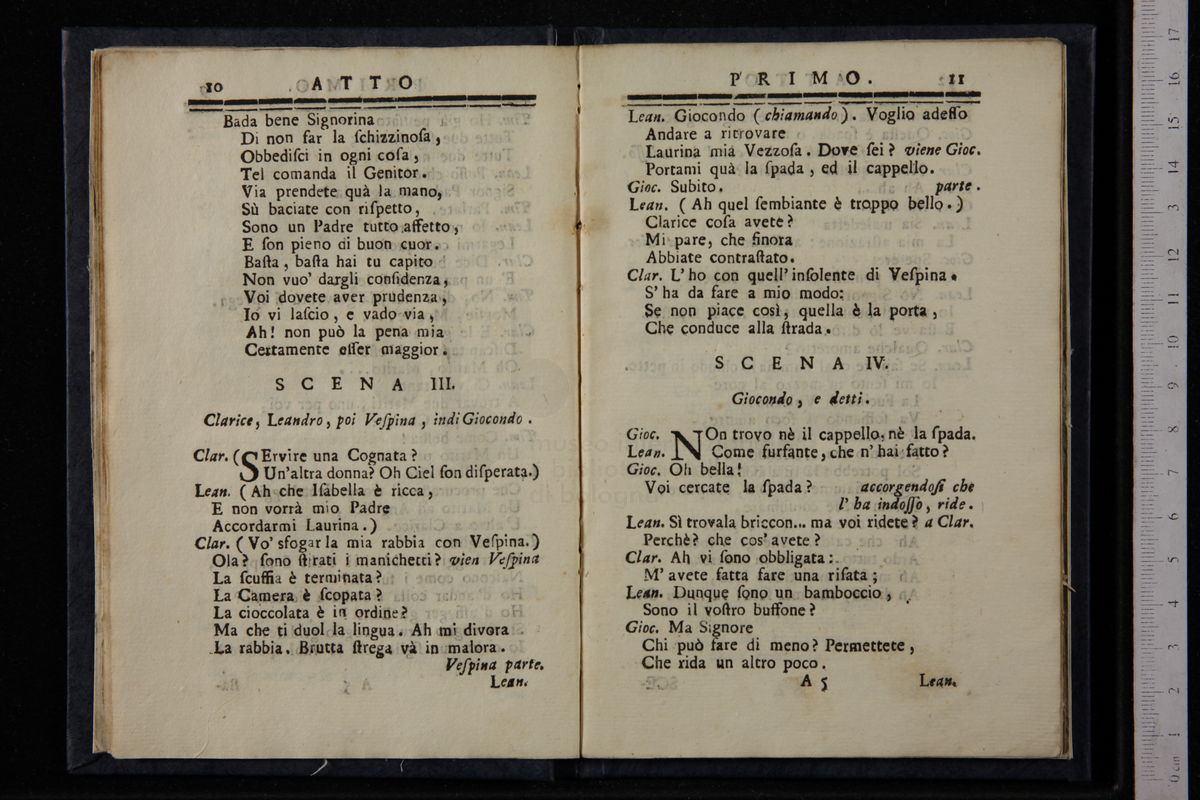 10 ATTO
Bada bene Signorina
Di non far la ſchizzinoſa,
Obbediſci in ogni coſa,
Tel comanda il Genitor.
Via prendete quà la mano,
Sù baciate con riſpetto,
Sono un Padre tutto affetto,
E ſon pieno di buon cuor.
Baſta, baſta hai tu capito
Non vuo' dargli confidenza,
Voi dovete aver prudenza,
Io vi laſcio, e vado via,
Ah! non può la pena mia
Certamente eſſer maggior.
SCENA III.
Clarice, Leandro, poi Veſpina, indi Giocondo.
Clar. (SErvire una Cognata?
Un'altra donna? Oh Ciel ſon diſperata.)
Lean. (Ah che Iſabella è ricca,
E non vorrà mio Padre
Accordarmi Laurina.)
Clar. (Vo' sfogar la mia rabbia con Veſpina.)
Ola? ſono ſtirati i manichetti? vien Veſpina
La ſcuffia è terminata?
La Camera è ſcopata?
La cioccolata è in ordine?
Ma che ti duol la lingua. Ah mi divora
La rabbia. Brutta ſtrega và in malora.
Veſpina parte.
Lean.
PRIMO. 11
Lean. Giocondo (chiamando). Voglio adeſſo
Andare a ritrovare
Laurina mia Vezzoſa. Dove ſei? viene Gioc.
Portami quà la ſpada, ed il cappello.
Gioc. Subito. parte.
Lean. (Ah quel ſembiante è troppo bello.)
Clarice coſa avete?
Mi pare, che finora
Abbiate contraſtato.
Clar. L'ho con quell'inſolente di Veſpina.
S'ha da fare a mio modo:
Se non piace così, quella è la porta,
Che conduce alla ſtrada.
SCENA IV.
Giocondo, e detti.
Gioc. NOn trovo nè il cappello, nè la ſpada.
Lean. Come furfante, che n'hai fatto?
Gioc. Oh bella!
Voi cercate la ſpada? accorgendoſi che
l'ha indoſſo, ride.
Lean. Sì trovala briccon... ma voi ridete? a Clar.
Perchè? che cos'avete?
Clar. Ah vi ſono obbligata:
M'avete fatta fare una riſata;
Lean. Dunque ſono un bamboccio,
Sono il voſtro buffone?
Gioc. Ma Signore
Chi può fare di meno? Permettete,
Che rida un altro poco.
A 5 Lean.